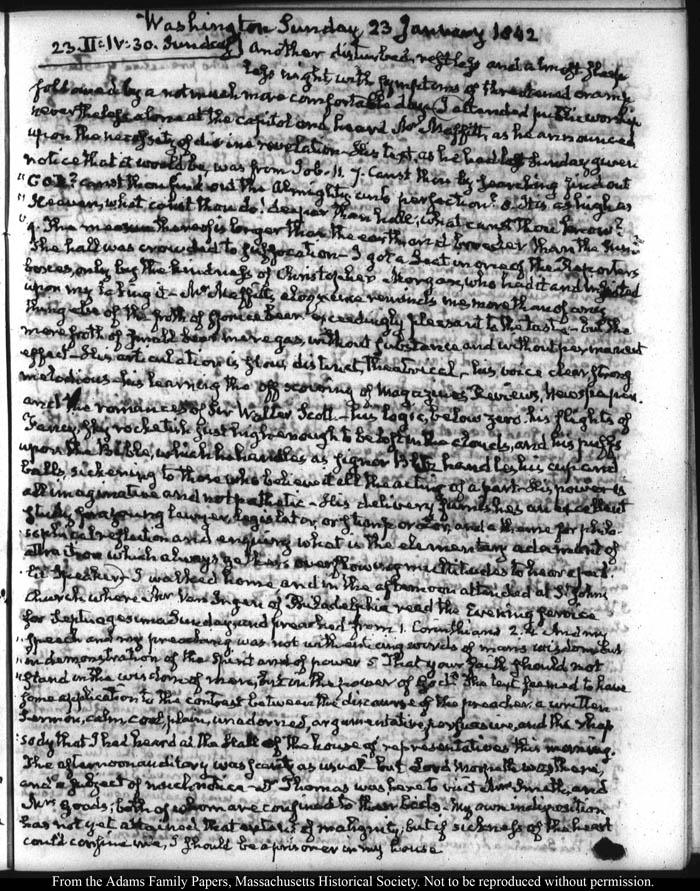 Washington Sunday 23 January 1842
23. II: IV: 30. Sunday] Another disturbed, restless and almost sleep-
less night with symptoms of threatened cramp
followed by a not much more comfortable day. I attended public worship
nevertheless alone at the Capitol and heard Mr Maffitt, as he announced
upon the necessity of divine revelation. His text, as he had last Sunday given
notice that it would be, was from Job. 11. 7. Canst thou by searching find out
"God? canst thou find out the Almighty unto perfection? 8. It is as high as
"Heaven, what canst thou do? deeper than hell, what canst thou know?
"9. The measure thereof is longer than the earth and broader than the sea."
The hall was crowded to suffocation—I got a seat in one of the Reporters
boxes, only by the kindness of Christopher Morgan, who had it and insisted
upon my taking it—Mr Maffitt's eloquence reminds me more than of any
thing else of the froth of spruce beer exceedingly pleasant to the taste—but the
mere froth of small beer mere gas, without substance and without permanent
effect—His articulation is slow, distinct, theatrical—his voice clear, strong
melodious—his learning the off scouring of Magazines, Reviews, Newspapers
and the romances of Sir Walter Scott—his logic, below zero. his flights of
Fancy, sky rockets just high enough to be lost in the clouds, and his puffs
upon the Bible, which he handles as Signor Blitz handles his cup and
balls, sickening to those who believe it all the acting of a part. His power is
all imaginative and not pathetic—His delivery furnishes an excellent
study for a young lawyer, legislator, or stump orator, and a theme for philo-
sophical reflection and enquiry what is the elementary adamant of
attraction which always gathers overflowing multitudes to hear a
Speaker) I walked home, and in the afternoon attended at St John's
Church where Mr Van Ingen of Philadelphia read the Evening service
for Septuagesima Sunday, and preached from 1. Corinthians 2. 4. And my
"speech and my preaching was not with enticing words of man's wisdom but
"in demonstration of the Spirit and of power 5 That your faith should not
"stand in the wisdom of men, but in the power of God." The text seemed to have
some application to the contrast between the discourse of the preacher a written
sermon, calm, cool, plain, unadorned, argumentative, persuasive, and the rhap-
sody that I had heard at the Hall of the house of representatives this morning.
The afternoon auditory was scanty as usual—but Lord Morpeth was there,
and a subject of much notice—Dr Thomas was here to visit Mrs Smith, and
Mrs Goods; both of whom are confined to their beds. My own indisposition
has not yet attained that extent of malignity; but if sickness of the heart
could confine me, I should be a prisoner in my house
From the Adams Family Papers, Massachusetts Historical Society. Not to be reproduced without permission.